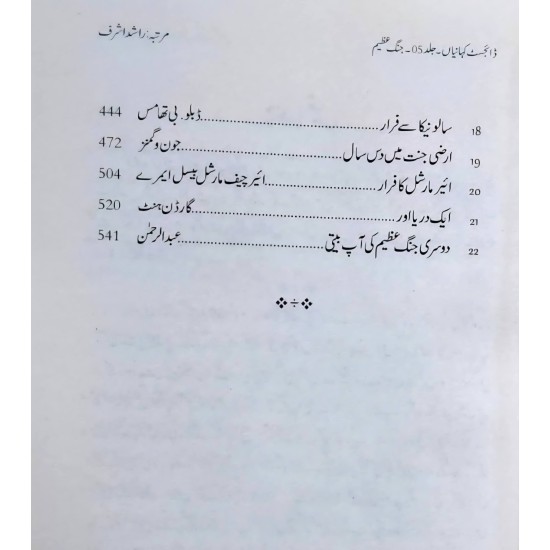 ڈائجسٹ کہانیاں۔ جلد 05۔ جنگ عظیم مرتبہ: راشد اشرف
18 سالونیکا سے فرار........................ڈبلو۔ بی تھامس 444
19 ارضی جنت میں دس سال........................جون وگمنز 472
20 ائیر مارشل کا فرار........................ائیر چیف مارشل بیسل ایمرے 504
21 ایک دریا اور........................گارڈن ہنٹ 520
22 دوسری جنگ عظیم کی آپ بیتی........................عبدالرحمٰن 541